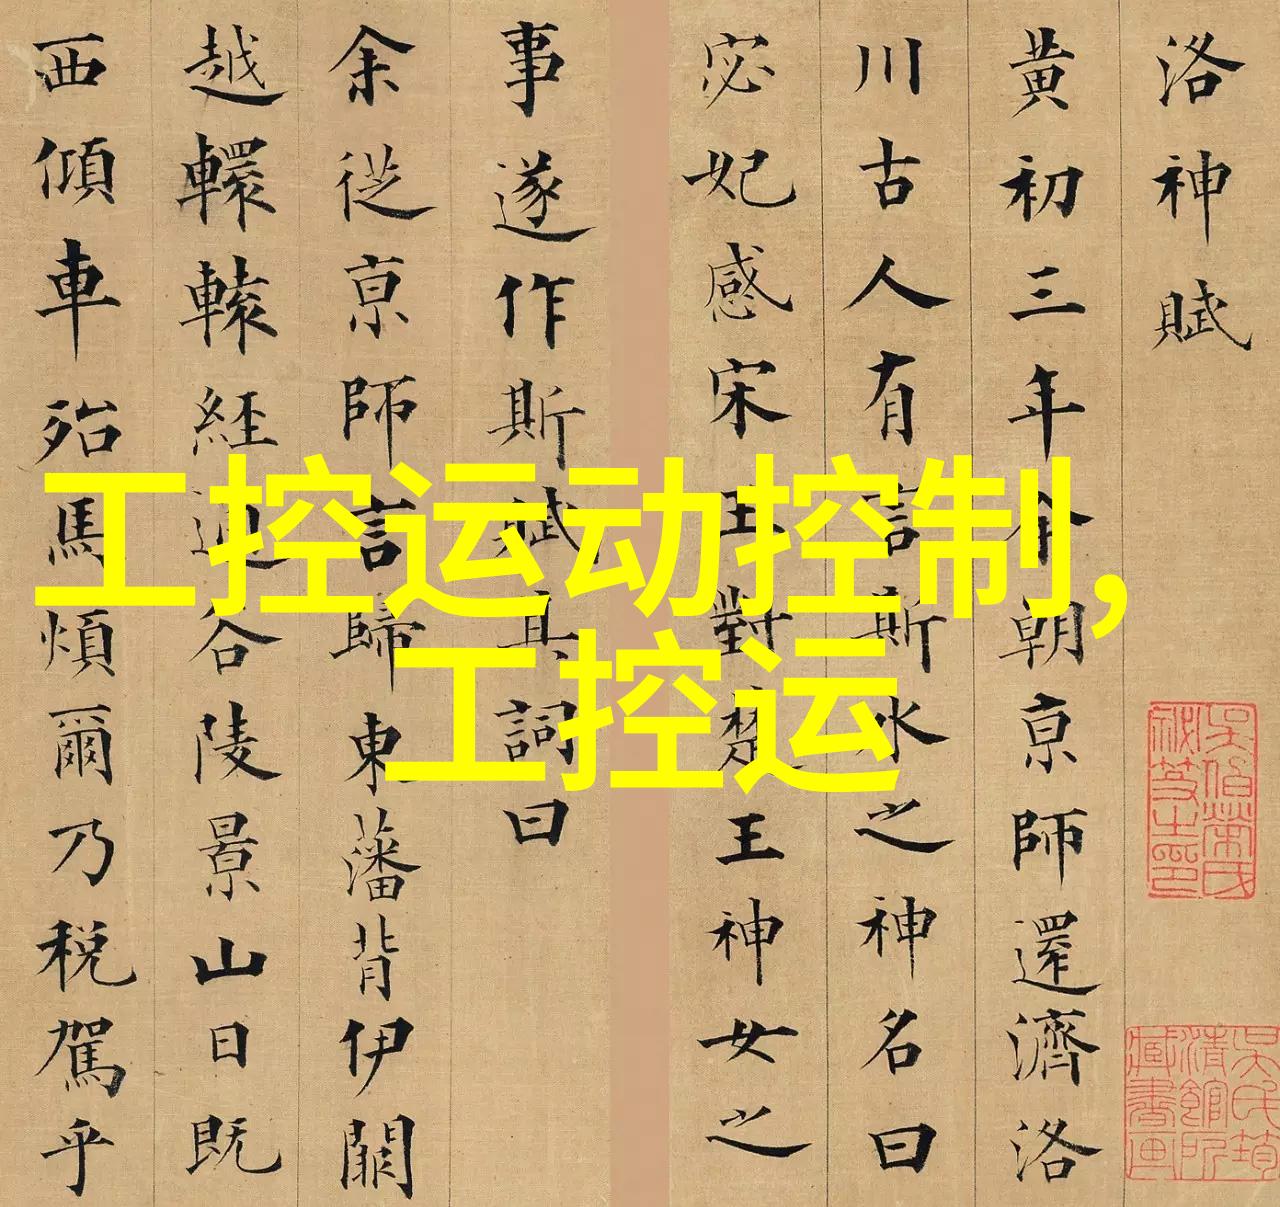 洛神賦
黃初三年余朝京師還濟洛
川古人有言斯水之神名曰
宓妃感宋玉對楚王神女之
事遂作斯賦其詞曰
余從京師言歸東藩背伊闕
越轘轅經通谷陵景山日既
西傾車殆馬煩爾乃稅駕乎
工控运动控制，
工控运